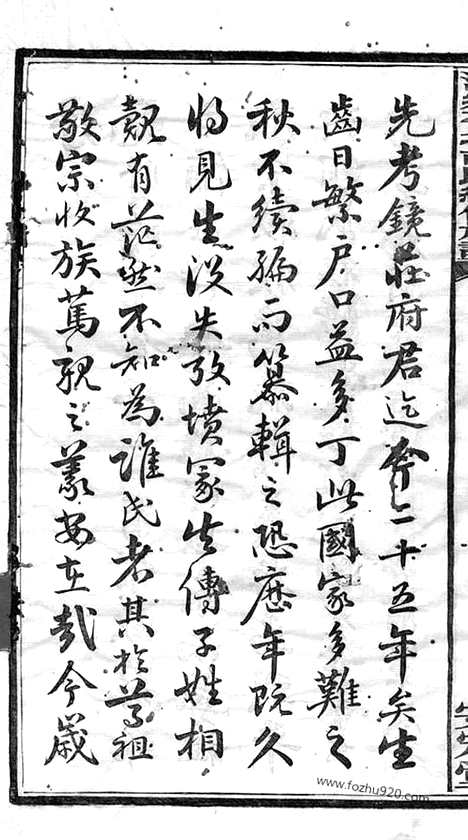 先考鏡莊府君迄今二十五年矣生
齒日繁户口益多丁此國家多難之
秋不續編而纂輯之恐歷年既久
將見生没失攷墳冢失傳子姓相
覿有茫然不知為誰氏者其於尊祖
敬宗收族篤親之義安在哉今歲
www.fozhu920.com